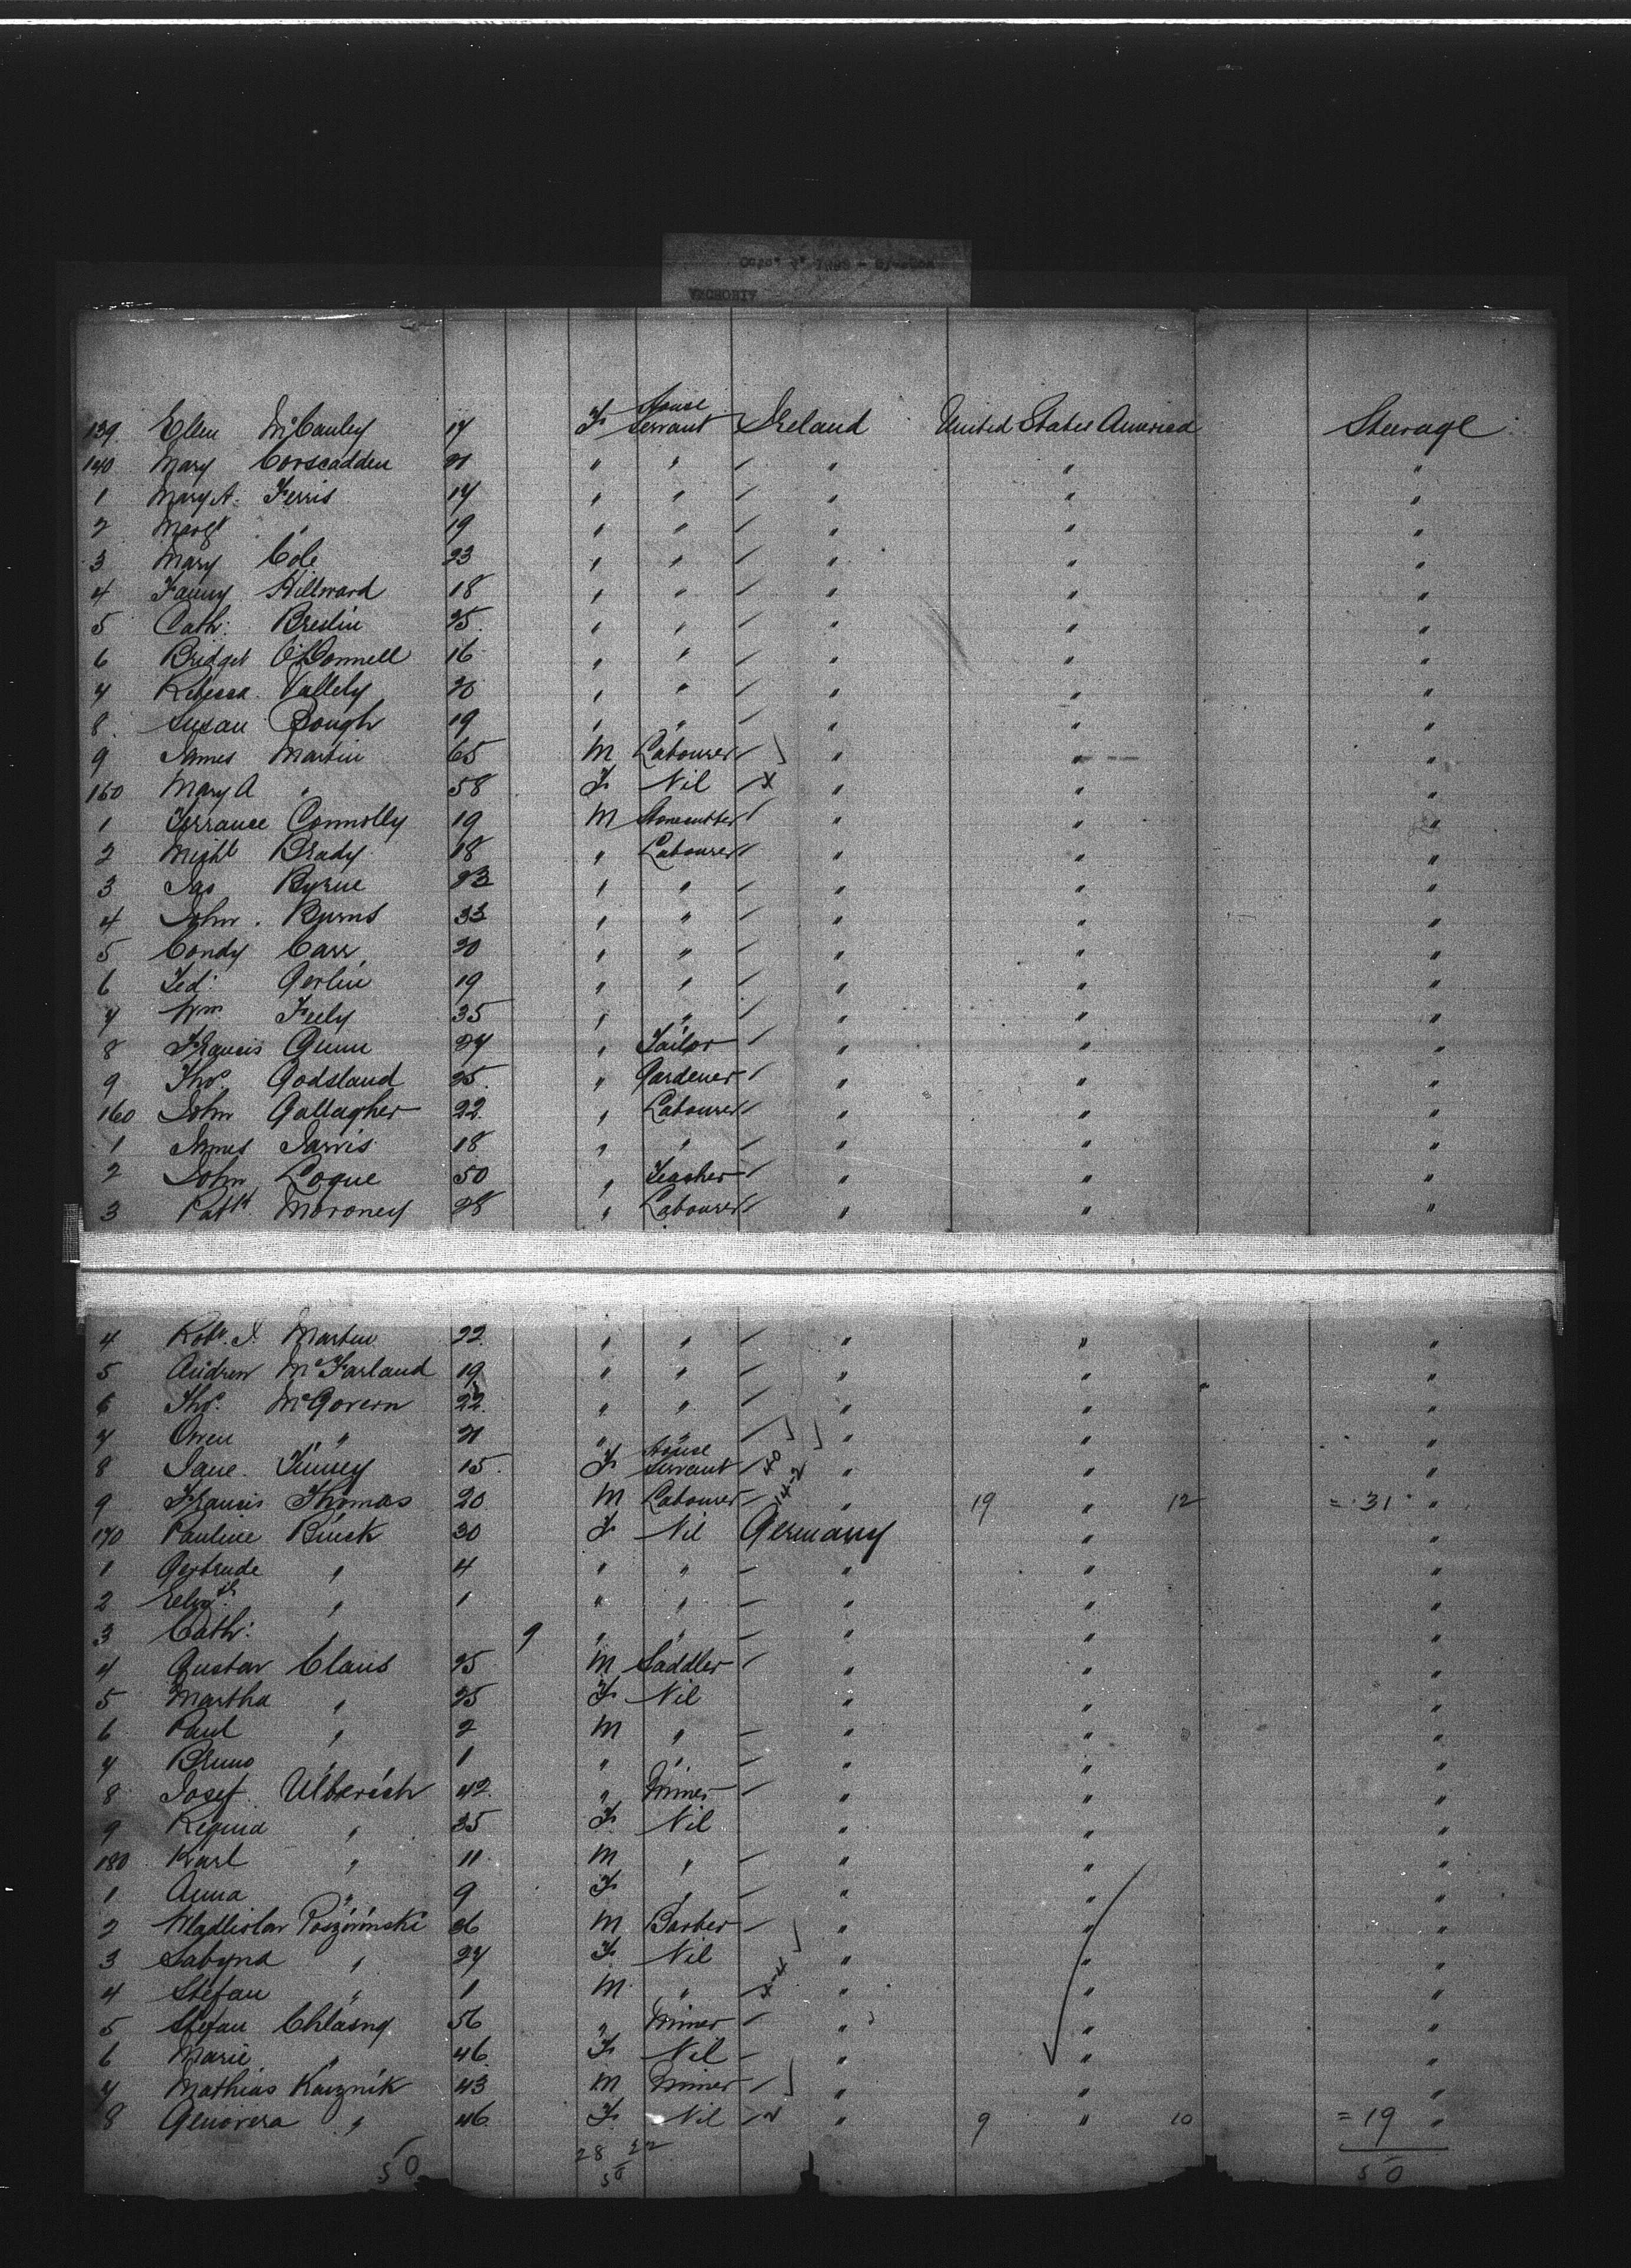 139 Ellen McCauley 17 F House Servant Ireland United States America Steerage
140 Mary Corscadden 21 " " / " " "
1 Mary A. Ferris 17 " " / " " "
2 Margt " 19 " " / " " "
3 Mary Cole 23 " " / " " "
4 Fanny Hillward 18 " " / " " "
5 Cath: Breslin 25 " " / " " "
6 Bridget O'Donnell 16 " " / " " "
7 Rebecca Vallely 20 " " / " " "
8 Susan Bough 19 " " / " " "
9 James Martin 65 M Labourer / " " "
150 Mary A " 58 F Nil / " " "
1 Terrance Connolly 19 M Stonecutter / " " "
2 Michl Brady 18 " Labourer / " " "
3 Jas Byrne 23 " " / " " "
4 John Burns 33 " " / " " "
5 Condy Carr 20 " " / " " "
6 Ted: Gerlin 19 " " / " " "
7 Wm Feely 35 " " / " " "
8 Francis Gunn 27 " Tailor / " " "
9 Thos. Godsland 25 " Gardener / " " "
160 John Gallagher 22 " Labourer / " " "
1 James Jarvis 18 " " / " " "
2 John Logue 50 " Teacher / " " "
3 Patk Moroney 28 " Labourer / " " "
4 Robt. J. Martin 22 " " / " " "
5 Andrew McFarland 19 " " / " " "
6 Thos. McGovern 22 " " / " " "
7 Owen " 21 " " / " " "
8 Jane Finney 15 F House Servant / " " "
9 Francis Thomas 20 M Labourer / " 19 " 12 = 31 "
170 Pauline Binck 30 F Nil Germany " "
1 Gertrude " 4 " " / " " "
2 Elizth " 1 " " / " " "
3 Cath: " 9 " " / " " "
4 Gustav Claus 25 M Saddler / " " "
5 Martha " 25 F Nil " " "
6 Paul " 2 M " / " " "
7 Bruno " 1 " " / " " "
8 Josef Ulbrich 42 " Miner / " " "
9 Regina " 35 F Nil " " "
180 Karl " 11 M " / " " "
1 Anna " 9 F " / " " "
2 Wladislav 26 M Barber / " " "
3 Sabyna " 27 F Nil " " "
4 Stefan " 1 M " / " " "
5 Stefan Chlasny 56 " Miner / " " "
6 Marie " 46 F Nil / " " "
7 Mathias Kuznik 43 M Miner / " " "
8 Genovera " 46 F Nil / " 9 " 10 = 19 "
50 28 22 50
50